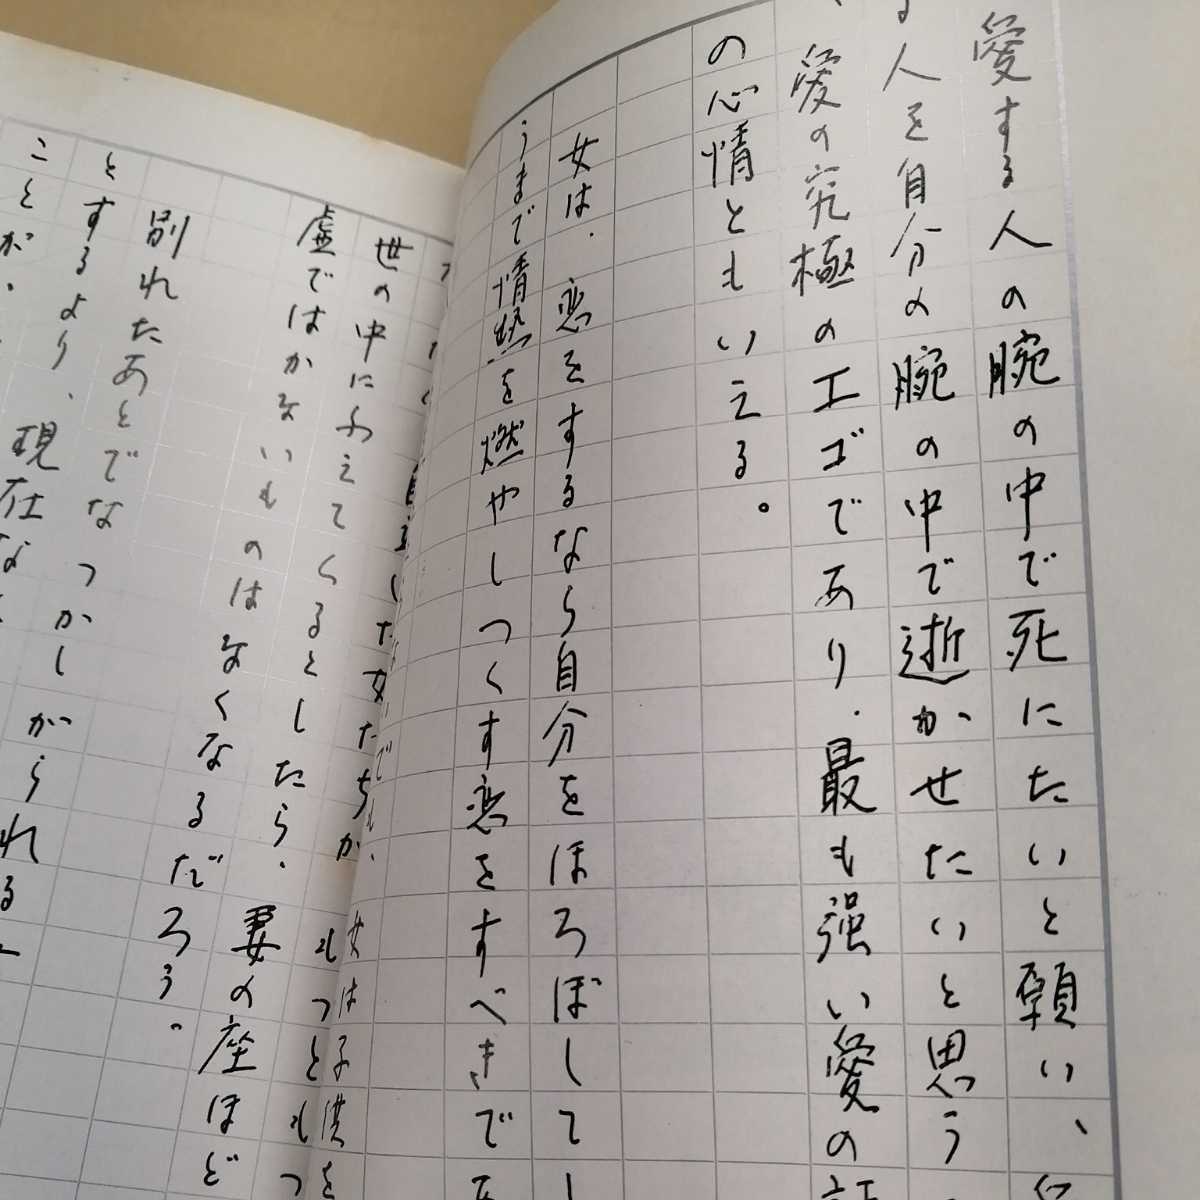 愛する人の腕の中で死にたいと願い、
人を自分の腕の中で逝かせたいと思う
愛の究極のエゴであり、最も強い愛の
の心情ともいえる。
女は、恋をするなら自分をほろぼしてし
うまで情熱を燃やしつくす恋をすべきであ
女は子供を
世の中にふえてくるとしたら、
虚ではかないものはなくなるだろう。
妻の座ほど
別れたあとでなつかしがられる
とするより、現在
ことが、